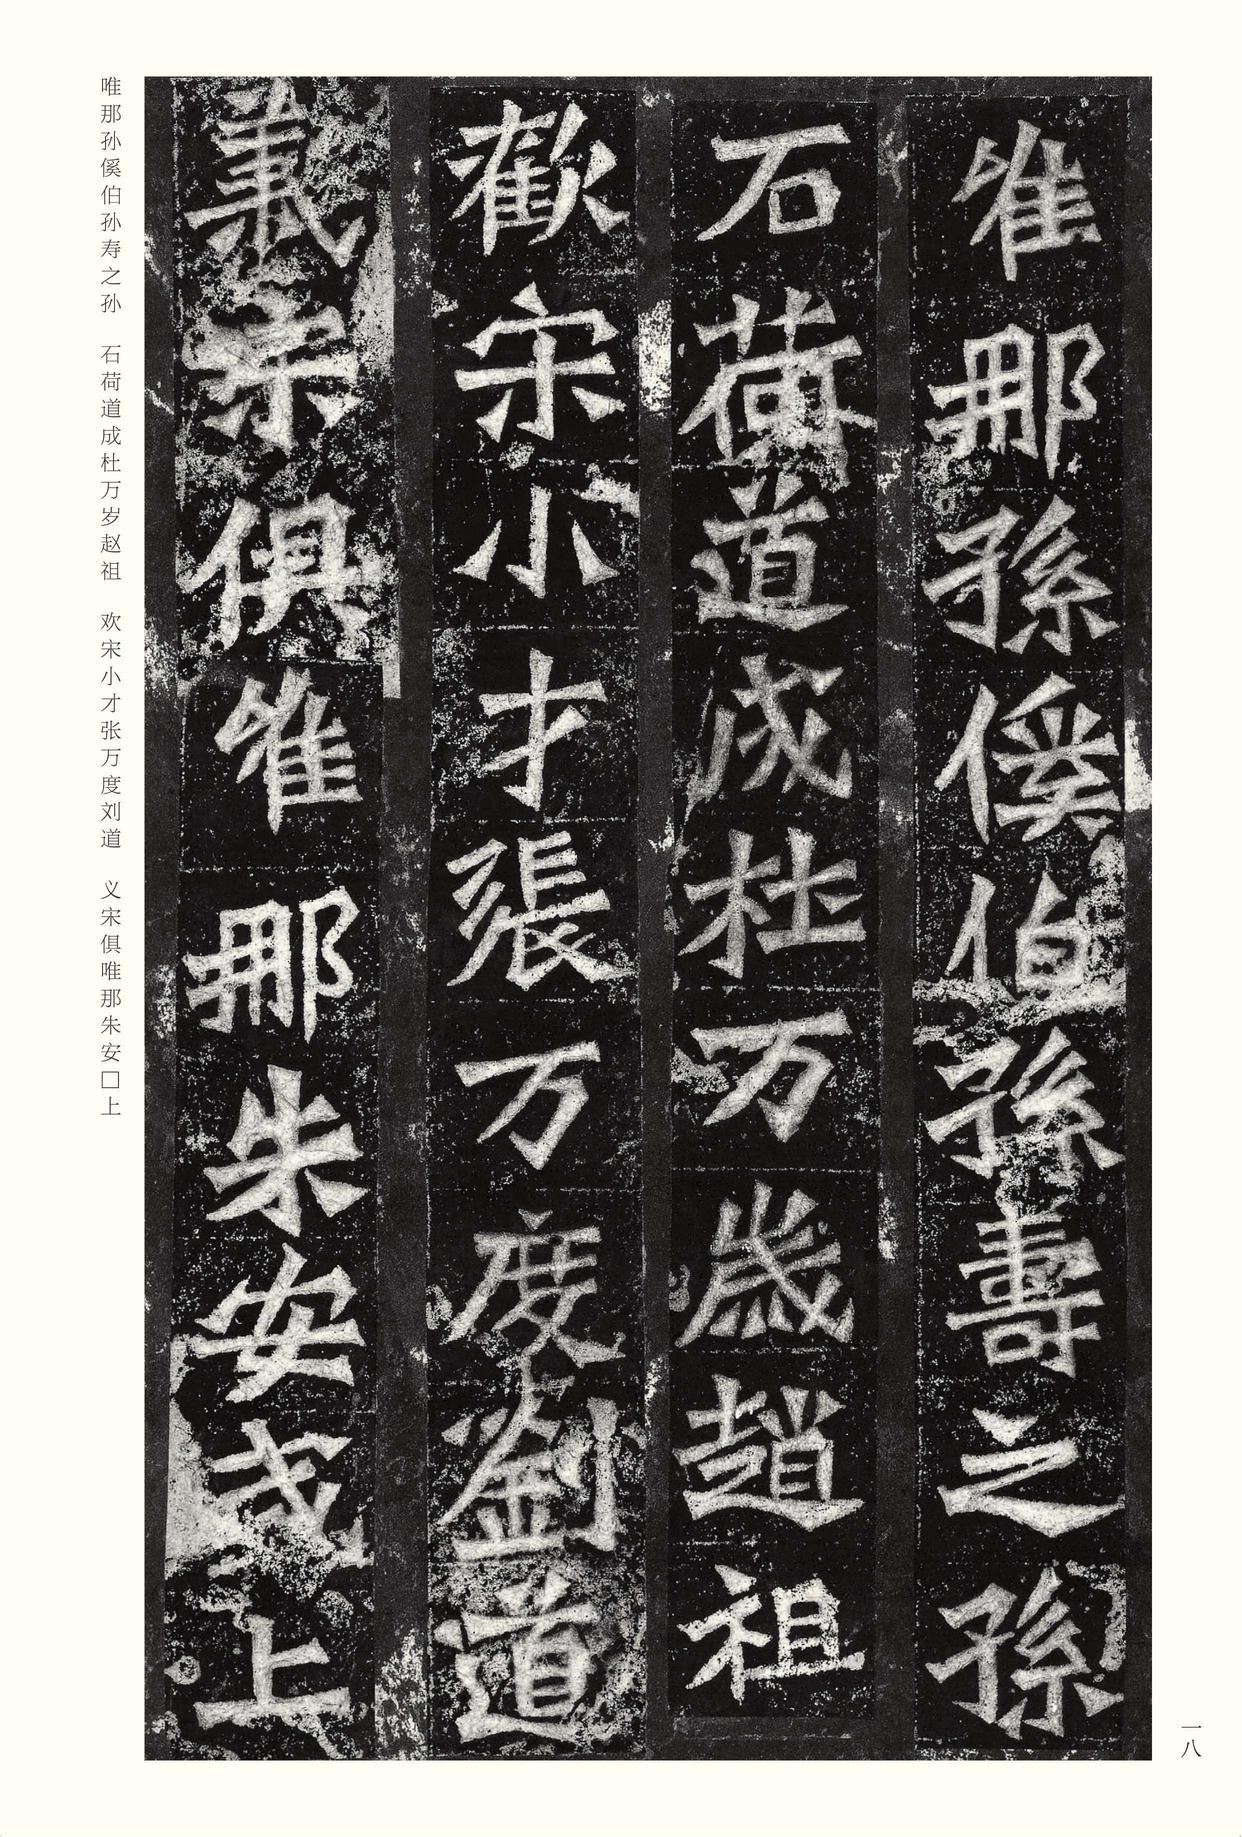 唯那孫傒伯孫壽之孫
石荷道成杜万歲趙祖
歡宋小才張万度劉道
義宋俱唯那朱安上
唯那孙傒伯孙寿之孙　石荷道成杜万岁赵祖　欢宋小才张万度刘道　义宋俱唯那朱安□上
一八